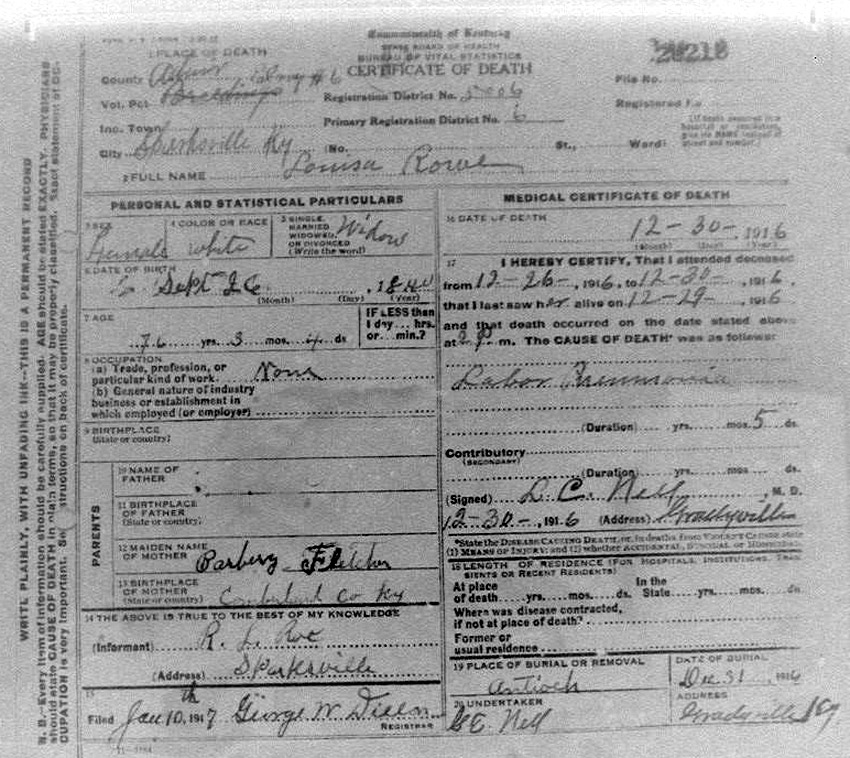 Commonwealth of Kentucky
STATE BOARD OF HEALTH
BUREAU OF VITAL STATISTICS
CERTIFICATE OF DEATH
1 PLACE OF DEATH
County Adair
Vot. Pct.
Inc. Town
City Sparksville Ky (No. St., Ward)
Registration District No. 5006
Primary Registration District No. 6
File No. 28210
Registered No.
2 FULL NAME Louisa Rowe
PERSONAL AND STATISTICAL PARTICULARS
3 SEX Female
4 COLOR OR RACE white
5 SINGLE, MARRIED, WIDOWED, OR DIVORCED (Write the word) Widow
6 DATE OF BIRTH Sept 26, 1840
(Month) (Day) (Year)
7 AGE 76 yrs. 3 mos. 4 ds
IF LESS than 1 day... hrs. or... min.?
8 OCCUPATION
(a) Trade, profession, or particular kind of work. None
(b) General nature of industry
business or establishment in
which employed (or employer)
9 BIRTHPLACE
(State or country)
PARENTS
10 NAME OF FATHER
11 BIRTHPLACE OF FATHER
(State or country)
12 MAIDEN NAME OF MOTHER Barbery Fletcher
13 BIRTHPLACE OF MOTHER
(State or country) Cumberland Co Ky
14 THE ABOVE IS TRUE TO THE BEST OF MY KNOWLEDGE
(Informant) R. L. Roe
(Address) Sparksville
15
Filed Jan 10th, 1917 George W. Dixon
REGISTRAR
MEDICAL CERTIFICATE OF DEATH
16 DATE OF DEATH
12-30-, 1916
(Month) (Day) (Year)
17 I HEREBY CERTIFY, That I attended deceased
from 12-26-, 1916, to 12-30-, 1916,
that I last saw her alive on 12-29-, 1916
and that death occurred on the date stated above
at 2 P. m. The CAUSE OF DEATH* was as follows:
Labor Pneumonia
(Duration) yrs. mos. 5 ds.
Contributory
(SECONDARY)
(Duration) yrs. mos. ds.
(Signed) L. C. Nell, M. D.
12-30-, 1916 (Address) Gradyville
*State the DISEASE CAUSING DEATH, or, in deaths from VIOLENT CAUSES state
(1) MEANS OF INJURY; and (2) whether ACCIDENTAL, SUICIDAL or HOMICIDAL
18 LENGTH OF RESIDENCE (FOR HOSPITALS, INSTITUTIONS, TRANSIENTS OR RECENT RESIDENTS)
At place of death yrs. mos. ds. In the State yrs. mos. ds.
Where was disease contracted,
if not at place of death?
Former or
usual residence
19 PLACE OF BURIAL OR REMOVAL
Antioch
DATE OF BURIAL
Dec 31, 1916
20 UNDERTAKER
C E. Nell
ADDRESS
Gradyville Ky
WRITE PLAINLY, WITH UNFADING INK—THIS IS A PERMANENT RECORD
N. B.—Every item of information should be carefully supplied. AGE should be stated EXACTLY. PHYSICIANS
should state CAUSE OF DEATH in plain terms, so that it may be properly classified. Exact statement of OC-
CUPATION is very important. See instructions on back of certificate.